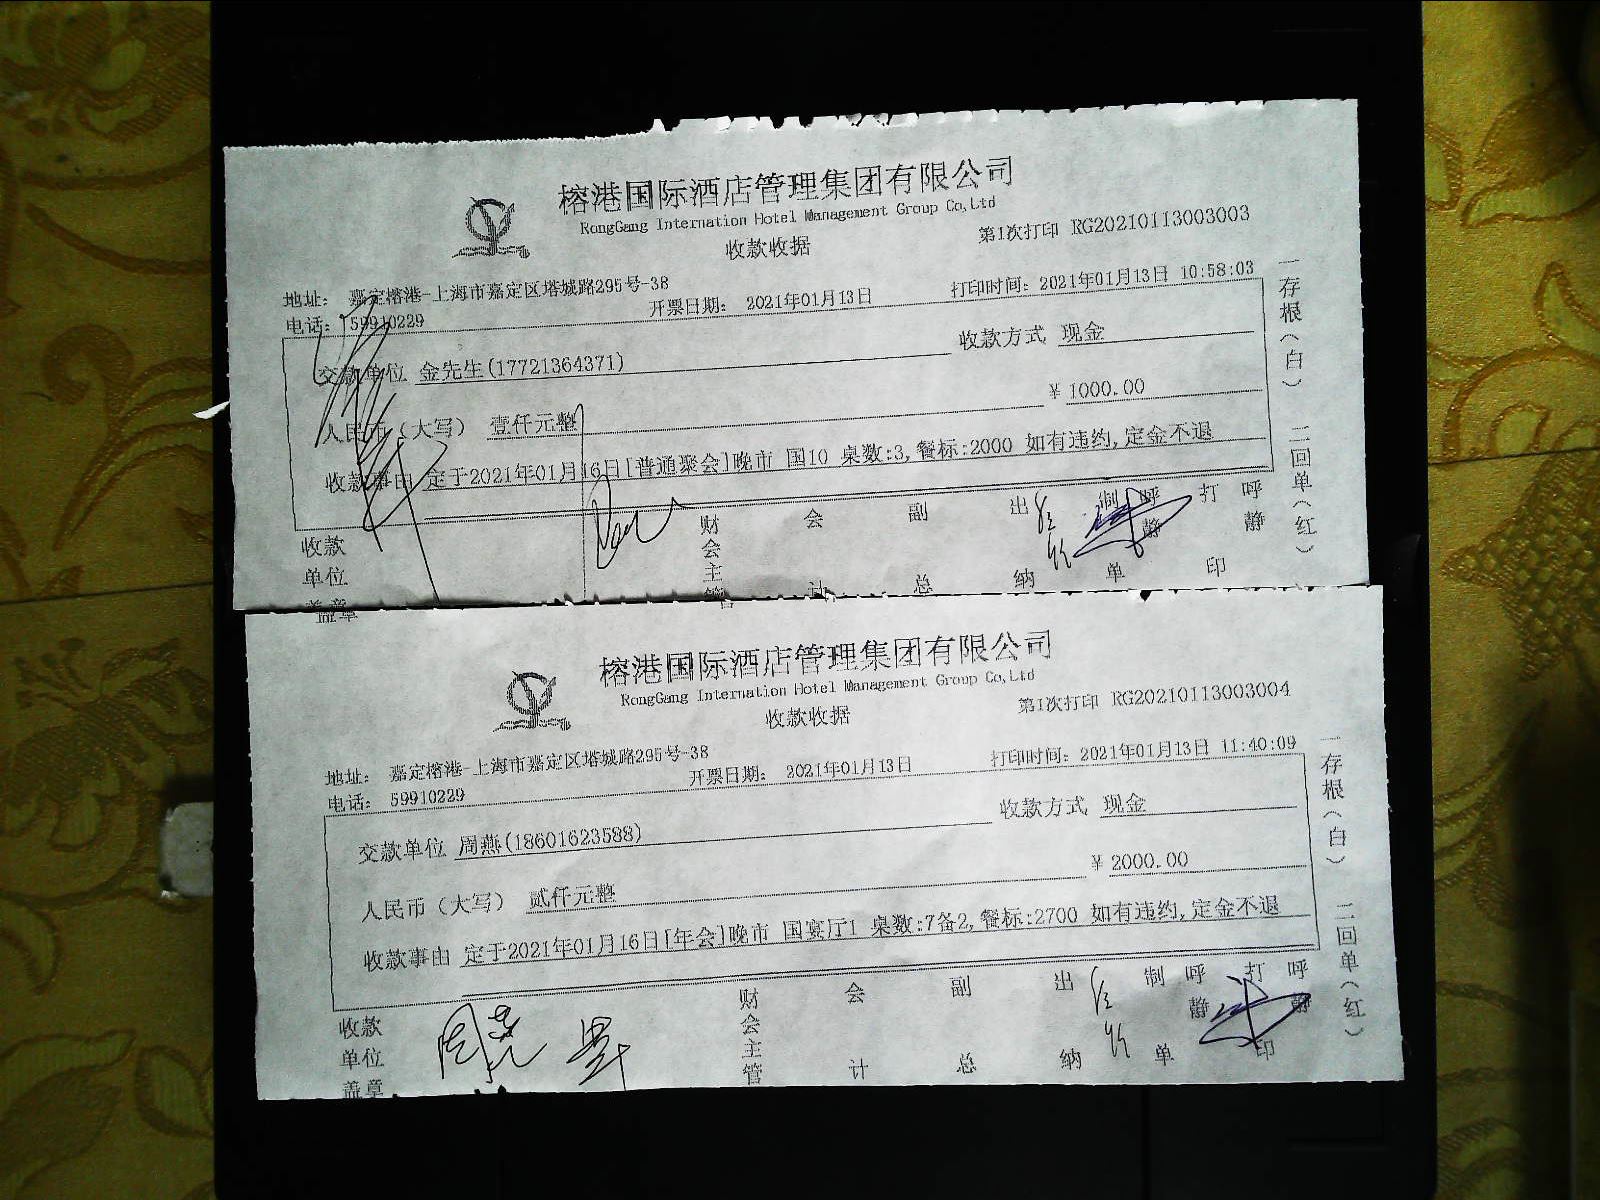 榕港国际酒店管理集团有限公司
RongGang Internation Hotel Management Group Co,Ltd
收款收据
第1次打印 RG20210113003003
地址： 嘉定榕港-上海市嘉定区塔城路295号-38
电话： 59910229
开票日期： 2021年01月13日
打印时间：2021年01月13日 10:58:03
交款单位 金先生(17721364371)
收款方式 现金
人民币（大写） 壹仟元整
¥ 1000.00
收款事由 定于2021年01月16日[普通聚会]晚市 国10 桌数:3,餐标:2000 如有违约,定金不退
收款单位盖章
财会主管
会计
副总
出纳
制单 呼静
打印 呼静
一存根（白） 二回单（红）
榕港国际酒店管理集团有限公司
RongGang Internation Hotel Management Group Co,Ltd
收款收据
第1次打印 RG20210113003004
地址： 嘉定榕港-上海市嘉定区塔城路295号-38
电话： 59910229
开票日期： 2021年01月13日
打印时间：2021年01月13日 11:40:09
交款单位 周燕(18601623588)
收款方式 现金
人民币（大写） 贰仟元整
¥ 2000.00
收款事由 定于2021年01月16日[年会]晚市 国宴厅1 桌数:7备2,餐标:2700 如有违约,定金不退
收款单位盖章
周燕
财会主管
会计
副总
出纳
制单 呼静
打印 呼静
一存根（白） 二回单（红）